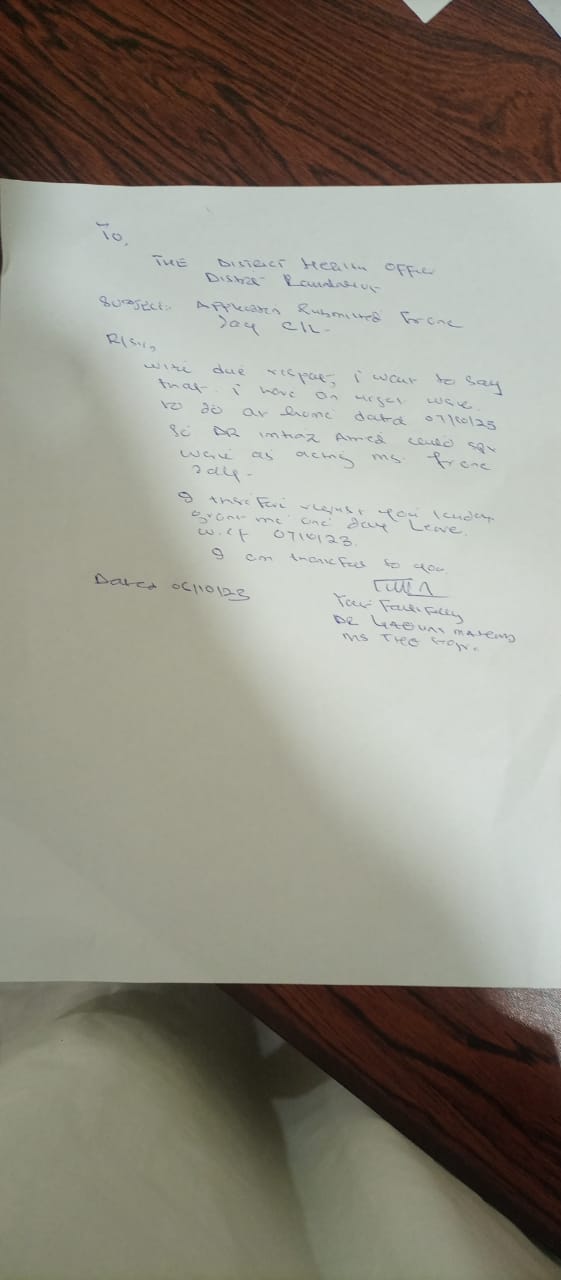 To,
THE District Health Office
Subject: Application Submitted For one
Day C/L -
R/Sir,
with due respect, i want to say
that i have an urgent work
to do at home dated 07/10/23
So DR Imtiaz Amed could
work as acting MS for one
day.
I therefore request you
grant me one day Leave
w.e.f 07/10/23.
I am thankful to you
Dated 06/10/23
Your Faithfully
DR
MS THQ Hosp.